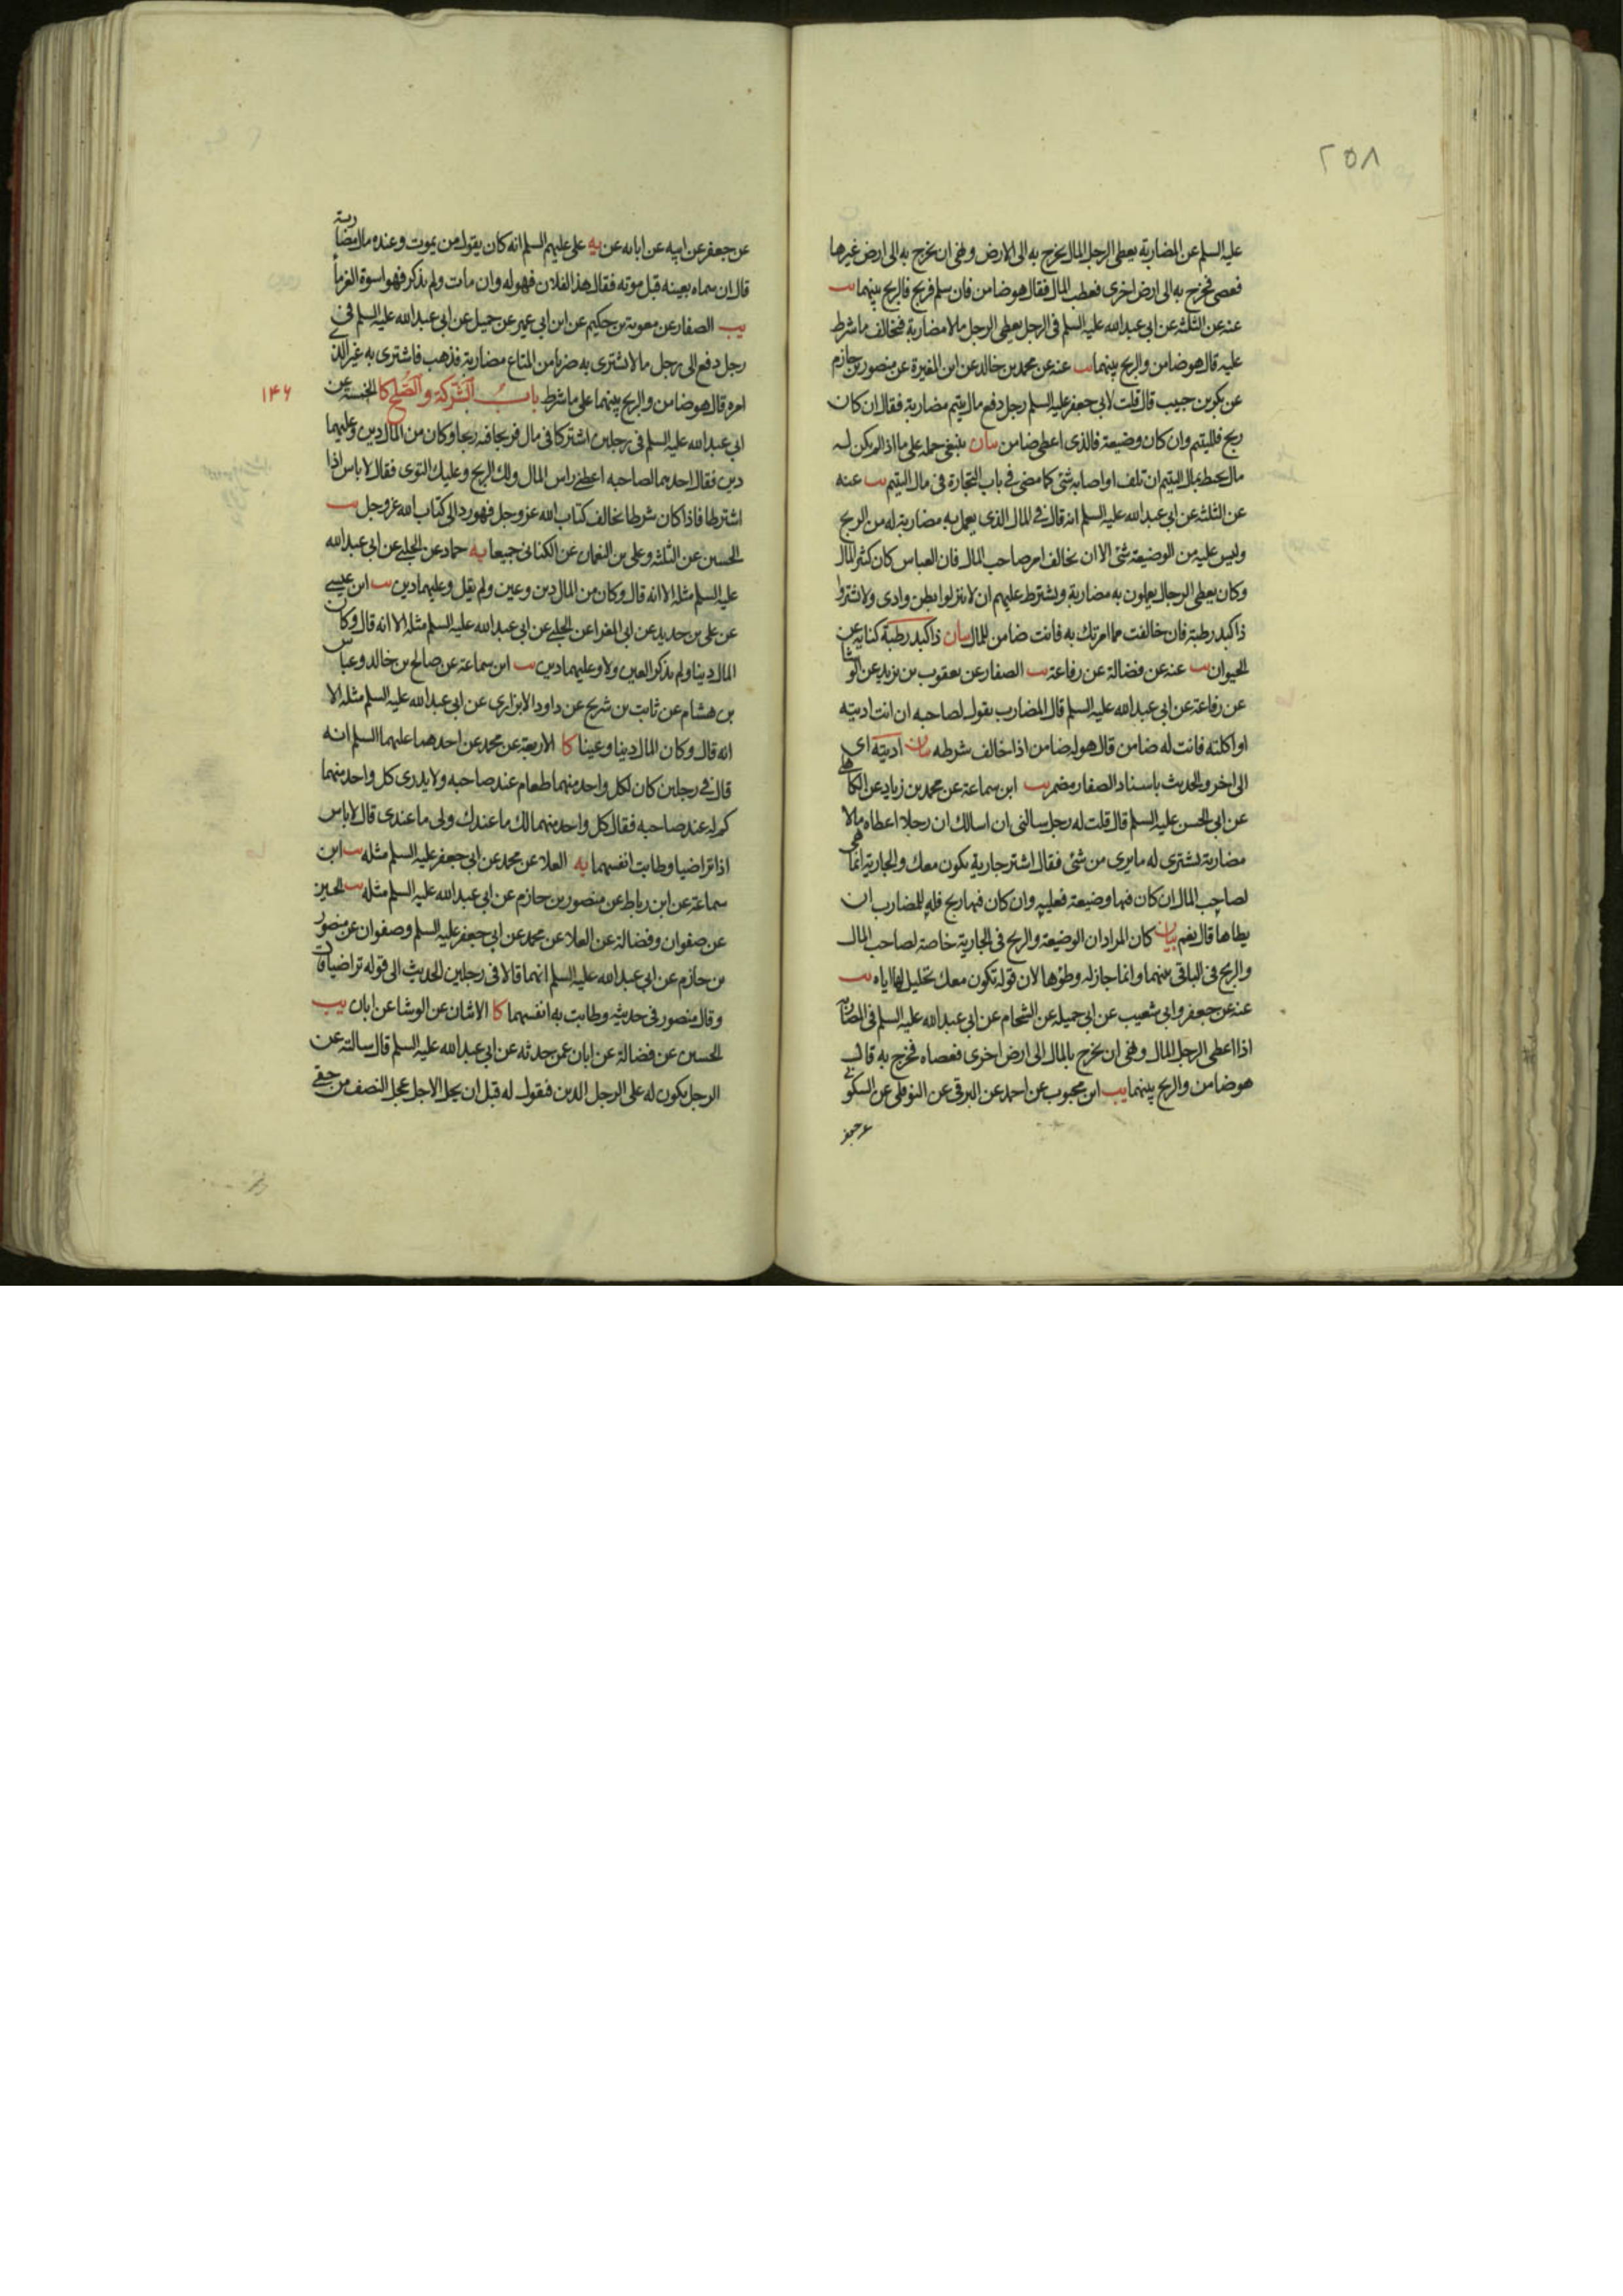 ٢٥٨
عليه السلم عن المضاربة يعطى الرجل المال يخرج به الى الارض ونهى ان يخرج به الى ارض غيرها
فعصى فخرج به الى ارض اخرى فعطب المال فقال هو ضامن فان سلم فربح فالربح بينهما يب
عنه عن الثلثة عن ابى عبد الله عليه السلم فى الرجل يعطى الرجل مالا مضاربة فيخالف ما شرط
عليه قال هو ضامن والربح بينهما يب عنه عن محمد بن خالد عن ابن المغيرة عن منصور بن حازم
عن بكر بن حبيب قال قلت لابى جعفر عليه السلم رجل دفع مال يتيم مضاربة فقال ان كان
ربح فلليتيم وان كان وضيعة فالذى اعطى ضامن بيان ينبغى حمله على ما اذا لم يكن له
مال يحيط بمال اليتيم ان تلف او اصابه شئ كما مضى فى باب التجارة فى مال اليتيم يب عنه
عن الثلثة عن ابى عبد الله عليه السلم انه قال فى المال الذى يعمل به مضاربة له من الربح
وليس عليه من الوضيعة شئ الا ان يخالف امر صاحب المال فان العباس كان كثير المال
وكان يعطى الرجال يعملون به مضاربة ويشترط عليهم ان لا ينزلوا بطن وادى ولا تشتروا
ذا كبد رطبة فان خالفت مما امرتك به فانت ضامن للمال بيان ذا كبد رطبة كناية عن
الحيوان يب عنه عن فضالة عن رفاعة يب الصفار عن يعقوب بن يزيد عن الوشا
عن رفاعة عن ابى عبد الله عليه السلم قال المضارب يقول لصاحبه ان انت ادنته
او اكلته فانت له ضامن قال هو له ضامن اذا خالف شرطه بيان ادنته اى
الى اخر والحديث باسناد الصفار مضمر يب ابن سماعة عن محمد بن زياد عن الكاهلى
عن ابى الحسن عليه السلم قال قلت له رجل سالنى ان اسالك ان رجلا اعطاه مالا
مضاربة يشترى له ما يرى من شئ فقال اشتر جارية تكون معك والجارية انما هى
لصاحب المال ان كان فيها وضيعة فعليه وان كان فيها ربح فله للمضارب ان
يطاها قال نعم بيان كان المراد ان الوضيعة والربح فى الجارية خاصة لصاحب المال
والربح فى الباقى بينهما وانما جاز له وطؤها لان قوله تكون معك تحليل لها اياه يب
عنه عن جعفر وابى شعيب عن ابى جميلة عن الشحام عن ابى عبد الله عليه السلم فى المضاربة
اذا اعطى الرجل المال ونهى ان يخرج بالمال الى ارض اخرى فعصاه فخرج به قال
هو ضامن والربح بينهما يب ابن محبوب عن احمد عن البرقى عن النوفلى عن السكونى
عن جعفر
عن جعفر عن ابيه عن ابائه عن يه على عليهم السلم انه كان يقول من يموت وعنده مال مضاربة
قال ان سماه بعينه قبل موته فقال هذا لفلان فهو له وان مات ولم يذكر فهو اسوة الغرماء
يب الصفار عن معوية بن حكيم عن ابن ابى عمير عن جميل عن ابى عبد الله عليه السلم فى
رجل دفع الى رجل مالا يشترى به ضربا من المتاع مضاربة فذهب فاشترى به غير الذى
امره قال هو ضامن والربح بينهما على ما شرط باب الشركة والصلح كا الخمسة عن
١٤٦
ابى عبد الله عليه السلم فى رجلين اشتركا فى مال فربحا فيه ربحا وكان من المال دين وعليهما
دين فقال احدهما لصاحبه اعطنى راس المال ولك الربح وعليك التوى فقال لا باس اذا
اشترطا فاذا كان شرطا يخالف كتاب الله عز وجل فهو رد الى كتاب الله عز وجل يب
الحسين عن الثلثة وعلى بن النعمان عن الكنانى جميعا يه حماد عن الحلبى عن ابى عبد الله
عليه السلم مثله الا انه قال وكان من المال دين وعين ولم يقل وعليهما دين يب ابن عيسى
عن على بن حديد عن ابى المغرا عن الحلبى عن ابى عبد الله عليه السلم مثله الا انه قال وكان
المال دينا ولم يذكر العين ولا وعليهما دين يب ابن سماعة عن صالح بن خالد وعباس
بن هشام عن ثابت بن شريح عن داود الابزارى عن ابى عبد الله عليه السلم مثله الا
انه قال وكان المال دينا وعينا كا الاربعة عن محمد عن احدهما عليهما السلم انه
قال فى رجلين كان لكل واحد منهما طعام عند صاحبه ولا يدرى كل واحد منهما
كم له عند صاحبه فقال كل واحد منهما لك ما عندك ولى ما عندى قال لا باس
اذا تراضيا وطابت انفسهما يه العلا عن محمد عن ابى جعفر عليه السلم مثله يب ابن
سماعة عن ابن رباط عن منصور بن حازم عن ابى عبد الله عليه السلم مثله يب الحسين
عن صفوان وفضالة عن العلا عن محمد عن ابى جعفر عليه السلم وصفوان عن منصور
بن حازم عن ابى عبد الله عليه السلم انهما قالا فى رجلين الحديث الى قوله تراضيا
وقال منصور فى حديثه وطابت به انفسهما كا الاثنان عن الوشا عن ابان يب
الحسين عن فضالة عن ابان عمن حدثه عن ابى عبد الله عليه السلم قال سالته عن
الرجل يكون له على الرجل الدين فيقول له قبل ان يحل الاجل عجل النصف من حقى